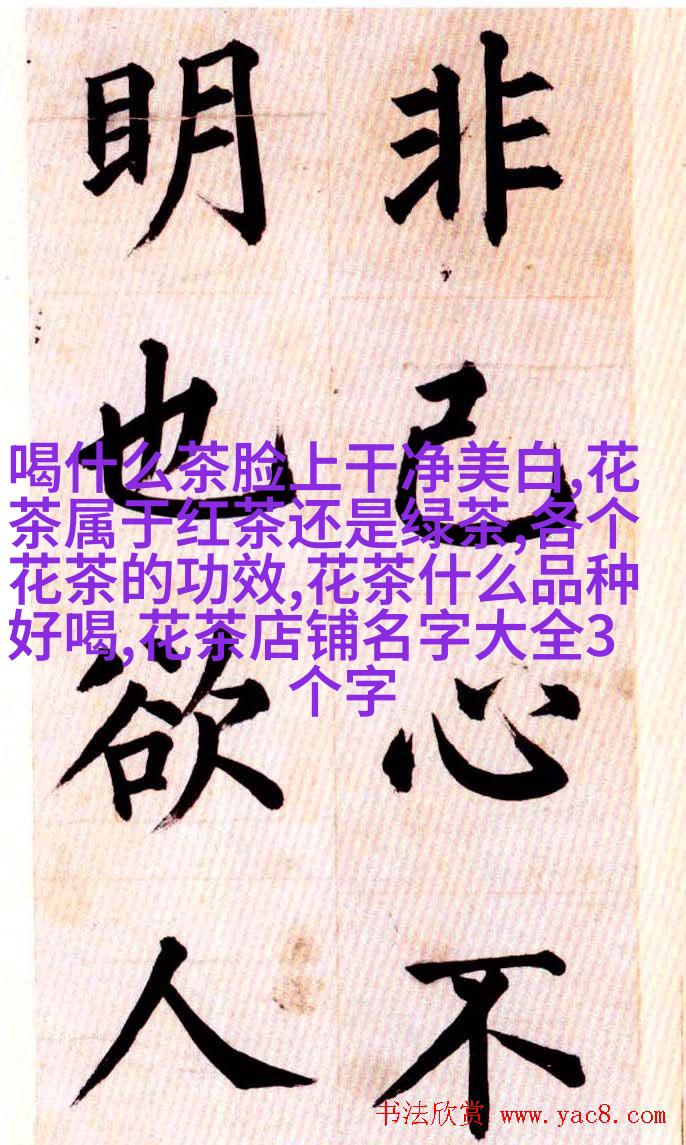 非己心不
明也欲人
喝什么茶脸上干净美白,花
茶属于红茶还是绿茶,各个
花茶的功效,花茶什么品种
好喝,花茶店铺名字大全3
个字
书法欣赏 www.yac8.com